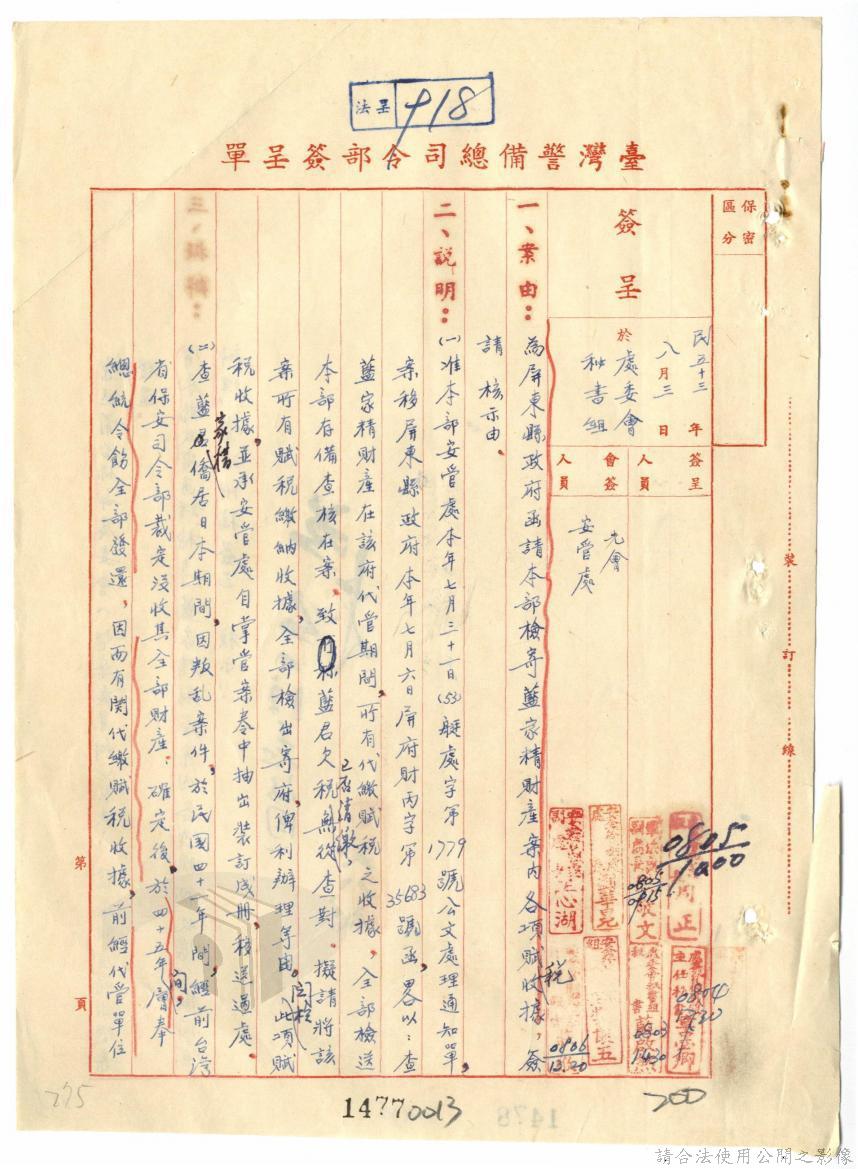 法呈 918
臺灣警備總司令部簽呈單
保密區分
簽呈
民五十三年
八月三日
於處委會
秘書組
簽呈人員
會簽人員
先會
安管處
一、案由：為屏東縣政府函請本部檢寄藍家精財產案內各項賦稅收據，簽
請 核示由。
二、說明：(一)准本部安管處本年七月三十一日(53)艇處字第1779號公文處理通知單，
案移屏東縣政府本年七月六日屏府財丙字第35683號函，畧以：查
藍家精財產在該府代管期間，所有代繳賦稅之收據，全部檢送
本部存備查核在案。致藍君欠稅已否清繳，無從查對。擬請將該
案所有賦稅繳納收據，全部檢出寄府，俾利辦理等由。此項賦
稅收據，並承安管處自掌管案卷中抽出裝訂成冊，移送過處。
三、擬辦：
(二)查藍君家精僑居日本期間，因叛乱案件，於民國四十一年間，經前台灣
省保安司令部裁定沒收其全部財產。確定後，於四十五年間，層奉
總統令飭全部發還，因而有関代繳賦稅收據，前經代管單位
裝 訂 線
第 頁
0805
1000
0805
0915
0804
1720
0803
1430
0806
1220
275
14770013
1478
200
請合法使用公開之影像